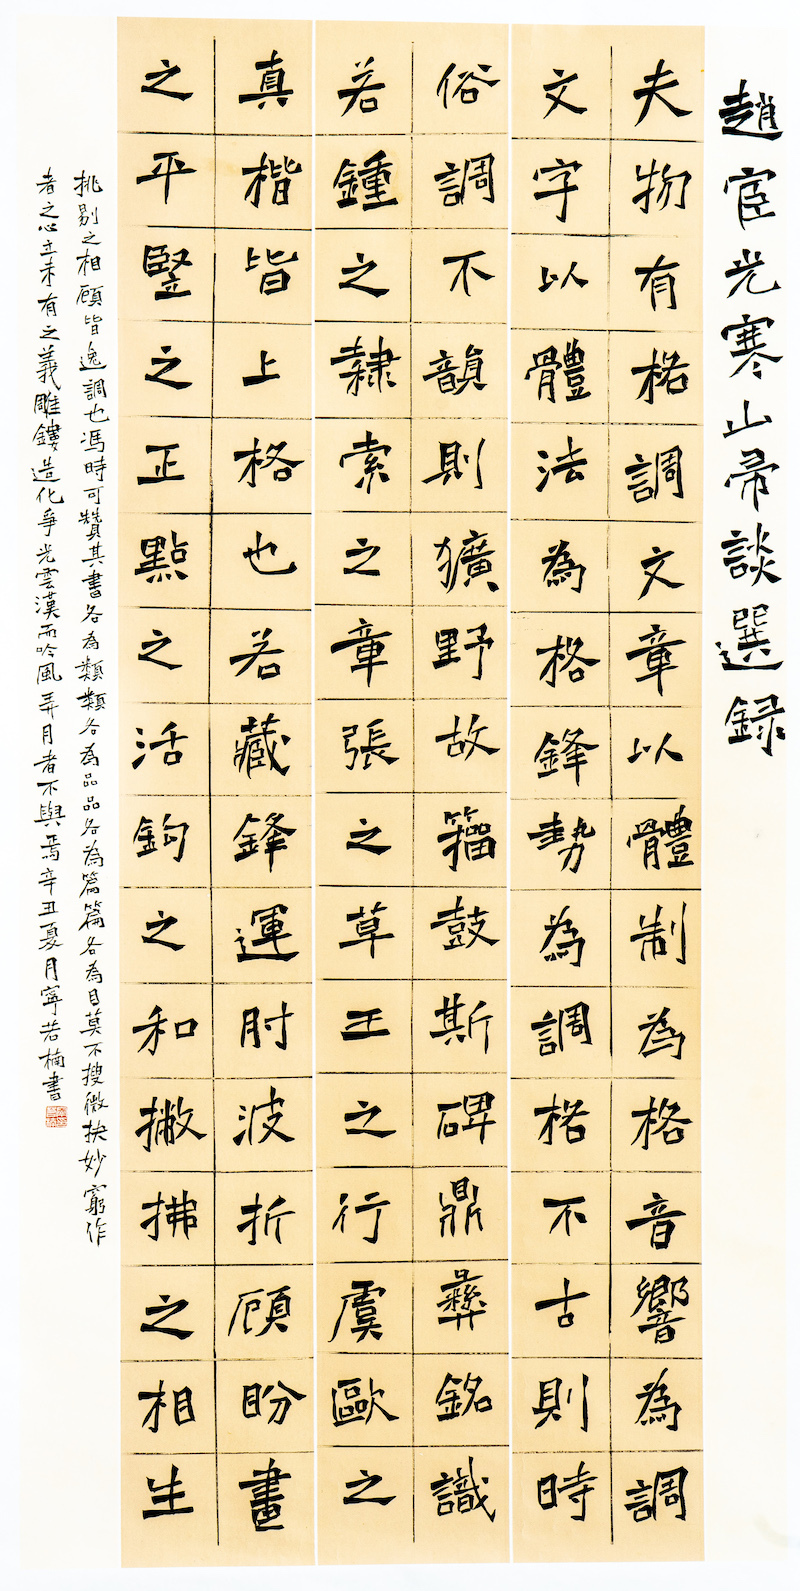 趙宧光寒山帚談選録
夫物有格調文章以體制為格音響為調
文字以體法為格鋒勢為調格不古則時
俗調不韻則獷野故籀鼓斯碑鼎彝銘識
若鍾之隸索之章張之草王之行虞歐之
真楷皆上格也若藏鋒運肘波折顧盼畫
之平竪之正點之活鉤之和撇拂之相生
挑剔之相顧皆逸調也馮時可贊其書各為類類各為品品各為篇篇各為目莫不搜微抉妙窮作
者之心立未有之義雕鏤造化爭光雲漢而吟風弄月者不與焉辛丑夏月寧若楠書